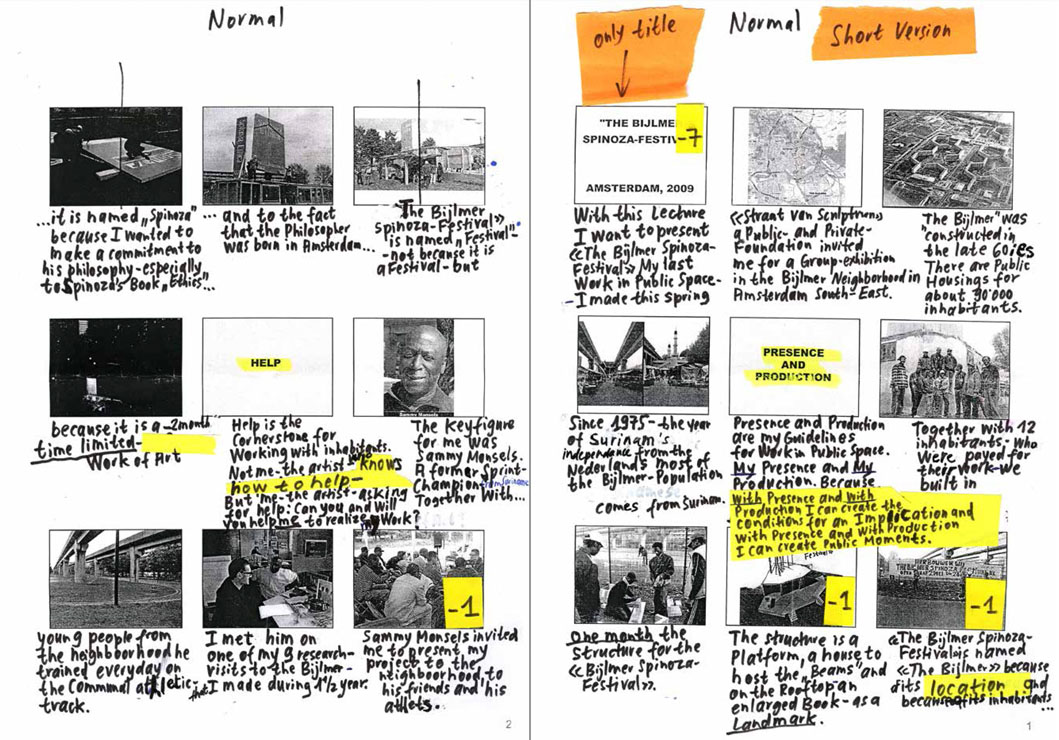 Normal
...it is named „Spinoza"
because I wanted to
make a commitment to
his philosophy-especially
to Spinoza's Book „Ethics"...
... and to the fact
that the Philosopher
was born in Amsterdam...
The Bijlmer
Spinoza-Festival»
is named „Festival"-
-not because it is
a Festival - but
because it is a -2month
time limited-
Work of Art
HELP
Help is the
Cornerstone for
Working with inhabitants.
Not me-the artist- knows
how to help-
But me-the artist-asking
for help: Can you and Will
you help me to realize my Work?
Sammy Monsels
The Keyfigure
for me was
Sammy Monsels.
A former Sprint-
Champion from Suriname
Together With...
young people from
the neighbourhood he
trained everyday on
the Communal athletic-
track.
I met him on
one of my 9 research-
visits to the Bijlmer-
that I made during 1½ year.
-1
Sammy Monsels invited
me to present my
project to the
neighbourhood to
his friends and his
athlets.
2
only title
Normal
Short Version
"THE BIJLME
SPINOZA-FESTIV
-7
AMSTERDAM, 2009
With this Lecture
I want to present
«The Bijlmer Spinoza-
Festival» My last
Work in Public Space-
-I made this spring
«Straat van Sculpturen»
a Public- and Private-
Foundation invited
me for a Group-exhibition
in the Bijlmer Neighborhood in
Amsterdam South-East.
The Bijlmer" was
"constructed in
the late 60ies
There are Public
Housings for
about 90'000
inhabitants.
Since 1975-the year
of Surinam's
independence from the
Nederlands most of
the Bijlmer-Population
comes from Surinam.
PRESENCE
AND
PRODUCTION
Presence and Production
are my Guidelines
for Work in Public Space.
My Presence and My
Production. Because
With Presence and With
Production I can create the
conditions for an Implication and
with Presence and with Production
I can create Public Moments.
Together with 12
inhabitants-who
were payed for
their work-we
built in
One month the
Structure for the
«Bijlmer Spinoza-
Festival».
-1
The structure is a
Platform, a house to
host the „Beams" and
on the Rooftop an
enlarged Book-as a
Landmark.
-1
«The Bijlmer Spinoza-
Festival» is named
«The Bijlmer» because
of its location and
because of its inhabitants
...
1